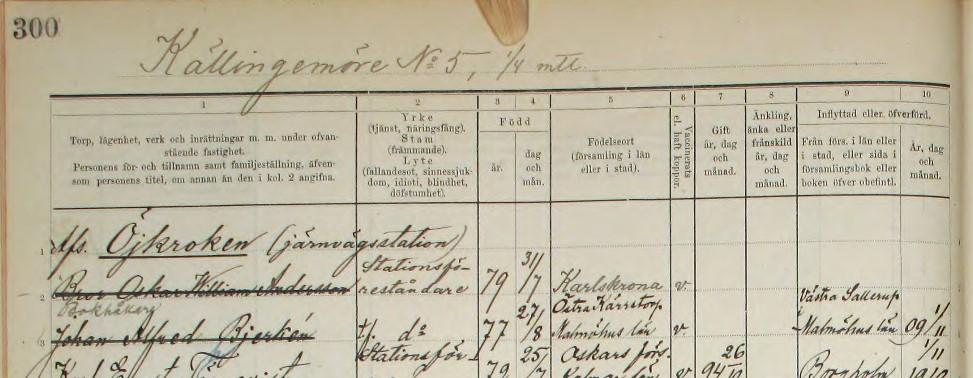 300
Källingemöre No 5, 1/4 mtl.
1 2 3 4 5 6 7 8 9 10
Torp, lägenhet, verk och inrättningar m. m. under ofvan-
stående fastighet.
Personens för- och tillnamn samt familjeställning, äfven-
som personens titel, om annan än den i kol. 2 angifna.
Yrke
(tjänst, näringsfång).
Stam
(främmande).
Lyte
(fallandesot, sinnessjuk-
dom, idioti, blindhet,
döfstumhet).
Född
år.
dag
och
mån.
Födelseort
(församling i län
eller i stad).
Vaccinerats
el. haft koppor.
Gift
år, dag
och
månad.
Änkling,
änka eller
frånskild
år, dag
och
månad.
Inflyttad eller öfverförd.
Från förs. i län eller
i stad, eller sida i
församlingsbok eller
boken öfver obefintl.
År, dag
och
månad.
1 Öjkroken (järnvägsstation)
2 Bror Oskar William Andersson Stationsfö-
reståndare 79 31/7 Karlskrona v
Bokhållare
3 Johan Alfred Bjerkén t.f. do 77 27/8 Östra Kärrstorp
Malmöhus län v Västra Sallerup
Malmöhus län 09 1/11
Stationsför- 79 25/7 Oskars förs.
Kalmar län v 26 Borgholm 1/11